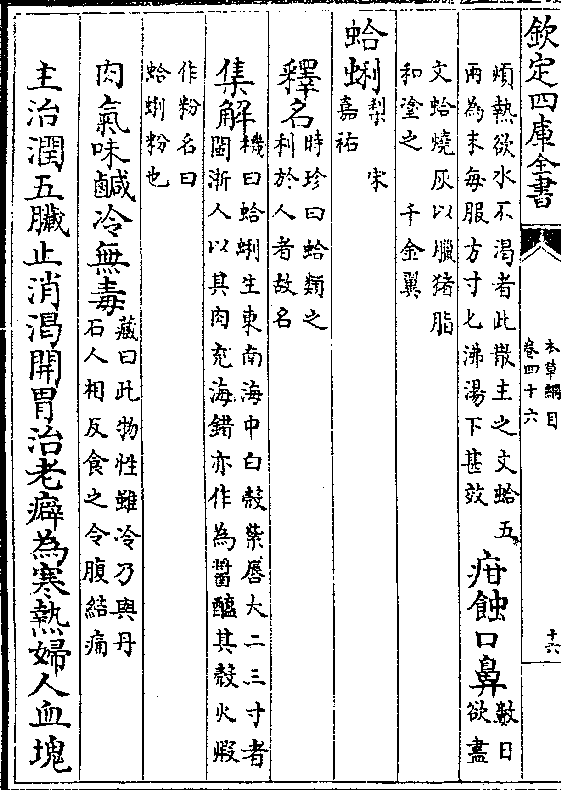 欽定四庫全書
本草綱目
卷四十六
十六
煩熱欲水不渴者此散主之文蛤五
兩為末每服方寸匕沸湯下甚效
疳蝕口鼻
數日
欲盡
文蛤燒灰以臘猪脂
和塗之 千金翼
蛤蜊
梨 宋
嘉祐
釋名
時珍曰蛤類之
利於人者故名
集解
機曰蛤蜊生東南海中白殼紫唇大二三寸者
閩浙人以其肉充海錯亦作為醬醯其殼火煅
作粉名曰
蛤蜊粉也
肉氣味鹹冷無毒
藏曰此物性雖冷乃與丹
石人相反食之令腹結痛
主治潤五臟止消渴開胃治老癖為寒熱婦人血塊